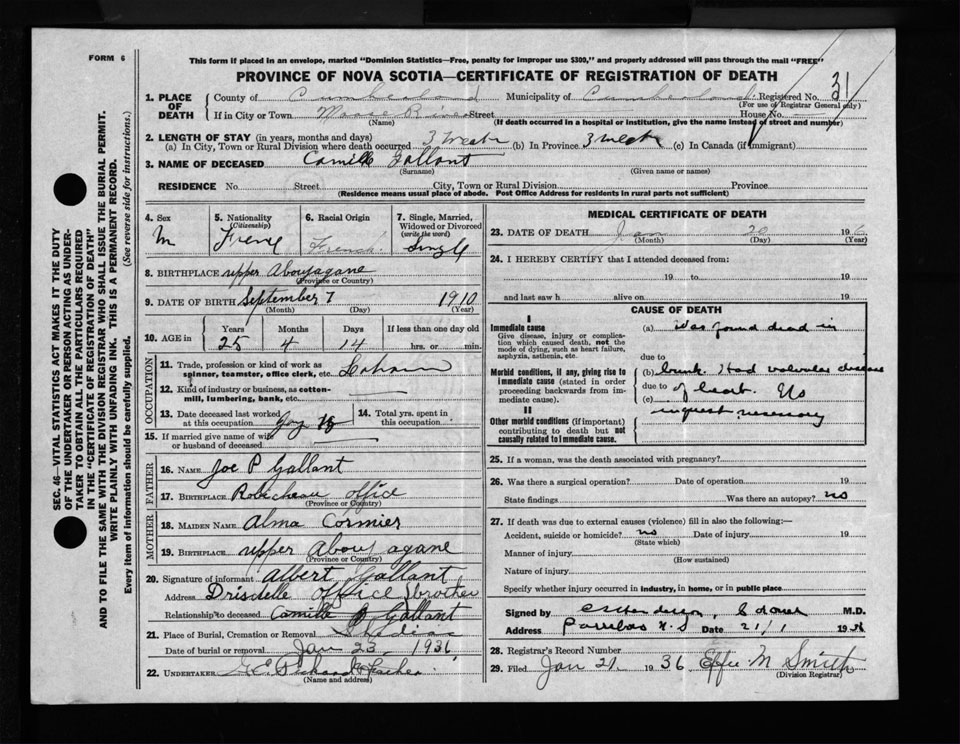 FORM 6
This form if placed in an envelope, marked "Dominion Statistics—Free, penalty for improper use $300," and properly addressed will pass through the mail "FREE"
PROVINCE OF NOVA SCOTIA—CERTIFICATE OF REGISTRATION OF DEATH
SEC. 46—VITAL STATISTICS ACT MAKES IT THE DUTY
OF THE UNDERTAKER OR PERSON ACTING AS UNDER-
TAKER TO OBTAIN ALL THE PARTICULARS REQUIRED
IN THE "CERTIFICATE OF REGISTRATION OF DEATH"
AND TO FILE THE SAME WITH THE DIVISION REGISTRAR WHO SHALL ISSUE THE BURIAL PERMIT.
WRITE PLAINLY WITH UNFADING INK. THIS IS A PERMANENT RECORD.
Every item of information should be carefully supplied. (See reverse side for instructions.)
1. PLACE OF DEATH
County of Cumberland Municipality of Cumberland Registered No. 31
(For use of Registrar General only)
If in City or Town River Street House No.
(Name) (If death occurred in a hospital or institution, give the name instead of street and number)
2. LENGTH OF STAY (in years, months and days)
(a) In City, Town or Rural Division where death occurred 3 weeks (b) In Province 3 weeks (c) In Canada (if immigrant)
3. NAME OF DECEASED Camille Gallant
(Surname) (Given name or names)
RESIDENCE No. Street City, Town or Rural Division Province
(Residence means usual place of abode. Post Office Address for residents in rural parts not sufficient)
4. Sex M
5. Nationality (Citizenship)
6. Racial Origin French
7. Single, Married, Widowed or Divorced (write the word) Single
8. BIRTHPLACE upper Aboujagane
(Province or Country)
9. DATE OF BIRTH September 7 1910
(Month) (Day) (Year)
10. AGE in Years Months Days If less than one day old
25 4 14 hrs. or min.
OCCUPATION
11. Trade, profession or kind of work as
spinner, teamster, office clerk, etc.
12. Kind of industry or business, as cotton-
mill, lumbering, bank, etc.
13. Date deceased last worked
at this occupation
14. Total yrs. spent in
this occupation
15. If married give name of wife
or husband of deceased
FATHER
16. NAME Joe P Gallant
17. BIRTHPLACE Robicheau office
(Province or Country)
MOTHER
18. MAIDEN NAME Alma Cormier
19. BIRTHPLACE upper Aboujagane
(Province or Country)
20. Signature of informant Albert Gallant
Address office brother
Relationship to deceased Camille Gallant
21. Place of Burial, Cremation or Removal Shediac
Date of burial or removal Jan 23, 1936
22. UNDERTAKER
(Name and address)
MEDICAL CERTIFICATE OF DEATH
23. DATE OF DEATH Jan 20 19 6
(Month) (Day) (Year)
24. I HEREBY CERTIFY that I attended deceased from:
19 to 19
and last saw h alive on 19
CAUSE OF DEATH
I
Immediate cause
Give disease, injury or complica-
tion which caused death, not the
mode of dying, such as heart failure,
asphyxia, asthenia, etc.
(a) was found dead in
due to
Morbid conditions, if any, giving rise to
immediate cause (stated in order
proceeding backwards from im-
mediate cause).
(b) bunk. Had valvular disease
due to
(c) of heart. No
II
Other morbid conditions (if important)
contributing to death but not
causally related to immediate cause.
inquest necessary
25. If a woman, was the death associated with pregnancy?
26. Was there a surgical operation? Date of operation 19
State findings Was there an autopsy? no
27. If death was due to external causes (violence) fill in also the following:—
Accident, suicide or homicide? no Date of injury 19
(State which)
Manner of injury
(How sustained)
Nature of injury
Specify whether injury occurred in industry, in home, or in public place
Signed by Coroner M.D.
Address N.S Date 21/1 1936
28. Registrar's Record Number
29. Filed Jan 21. 1936 Effie M Smith
(Division Registrar)